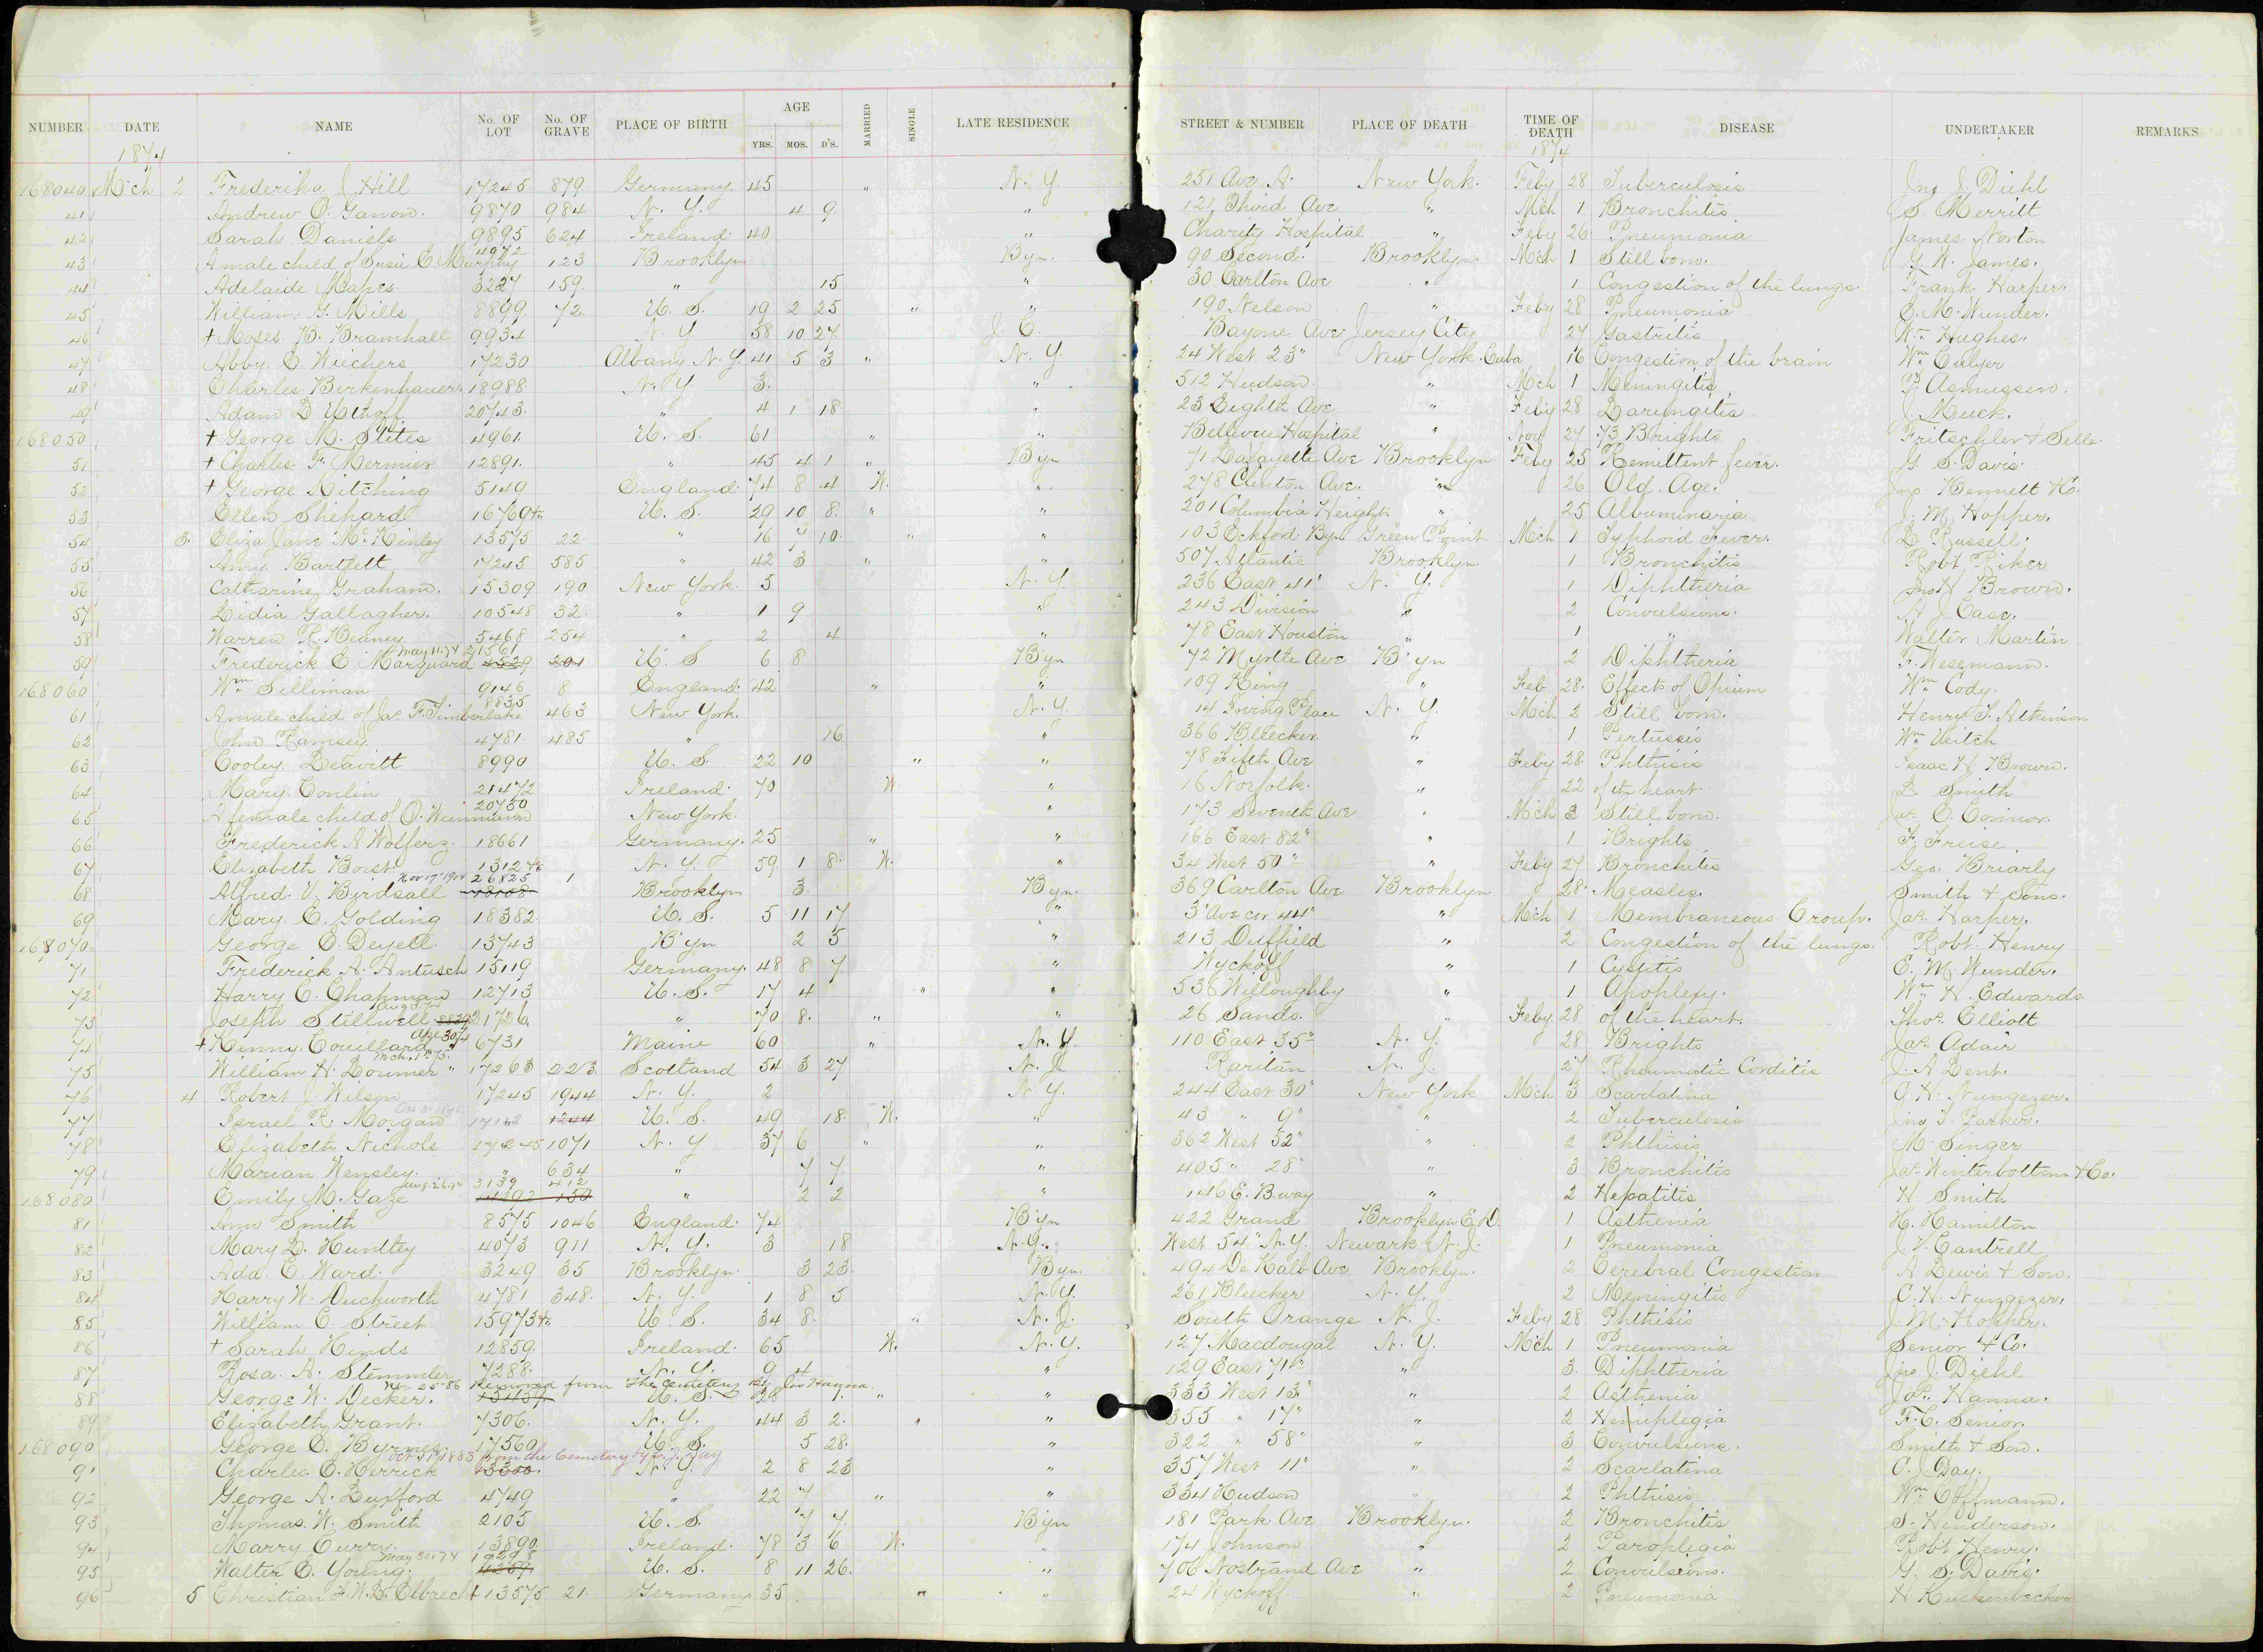 NUMBER DATE NAME No. OF LOT No. OF GRAVE PLACE OF BIRTH AGE YRS. MOS. D'S. MARRIED SINGLE LATE RESIDENCE STREET & NUMBER PLACE OF DEATH TIME OF DEATH DISEASE UNDERTAKER REMARKS
1874 1874
168040 Mch 2 Frederika J. Hill 17245 879 Germany 45 " N. Y. 251 Ave A. New York. Feby 28 Tuberculosis Jno J. Diehl
41 Andrew O. Ganon. 9870 984 N. Y. 4 9 " 121 Third Ave " Mch 1 Bronchitis S. Merritt
42 Sarah Daniels 9895 624 Ireland 40 " Charity Hospital " Feby 26 Pneumonia James Norton
43 A male child of Susie E. Murphy 4972 123 Brooklyn Byn. 90 Second. Brooklyn Mch 1 Still born. G. W. James.
44 Adelaide Mapes. 3227 159. " 15 " 30 Carlton Ave " 1 Congestion of the lungs. Frank Harper.
45 William G. Mills 8899 72 U. S. 19 2 25 " " 190 Nelson " Feby 28 Pneumonia E. M. Wunder.
46 + Moses B. Bramhall 9934 N. Y. 58 10 27 J. C. Bayone Ave Jersey City 27 Gastritis Wm Hughes.
47 Abby C. Wiechers 17230 Albany N. Y. 41 5 3 " N. Y. 24 West 23" New York. Cuba 16 Congestion of the brain Wm Culyer
48 Charles Birkenhauer 18988 N. Y. 3. " 512 Hudson. " Mch 1 Meningitis P. Asmussen.
49 Adam D. 20743. " 4 1 18 " 23 Eighth Ave " Feby 28 Laryngitis J. Muck.
168050 + George M. Stites 4961 U. S. 61 " " Bellevue Hospital " Nov 27 .73 Brights Fritschler &
51 + Charles F. Mermier 12891. " 45 4 1 " Byn 71 Lafayette Ave Brooklyn Feby 25 Remittent fever. G. S. Davis.
52 + George Kitching 5149 England 74 8 4 W. " 278 Clinton Ave. " 26 Old Age. Jno. Bennett & Co.
53 Ellen Shepard 16769 U. S. 29 10 8. " " 201 Columbia Heights " 25 Albuminaria J. M. Hopper.
54 3. Eliza Jane McKinley 13575 22 " 16 7 10. " " 103 Eckford Byn Green Point Mch 1 Typhoid Fever. D. Russell.
55 Amy Bartlett 17245 585 " 42 3 " " 507 Atlantic Brooklyn 1 Bronchitis Robt Riker
56 Catharine Graham. 15309 190 New York. 5 N. Y. 236 East 41" N. Y. 1 Diphtheria Jno H Brown.
57 Lidia Gallagher. 10548 32. " 1 9 " 243 Division " 2 Convulsions. A. J. Case.
58 Warren R. Beaney 5468 254 " 2 4 " 78 East Houston " 1 " Walter Martin
59 Frederick E. Marquard May 11. 74 21561 4529 201 U. S. 6 8 Byn 72 Myrtle Ave B'yn 2 Diphtheria F. Wesemann.
168060 Wm Silliman 9146 8 England 42 " " 109 King " Feb 28. Effects of Opium Wm Cody.
61 A male child of Jas. F. Timberlake 8835 463 New York. N. Y. 14 Irving Place N. Y. Mch 2 Still born. Henry S. Atkinson
62 John Ramsey. 4781. 485 " 16 " 366 Bleecker. " 1 Pertussis Wm Veitch
63 Cooley Leavitt 8990 U. S. 22 10 " " 78 Fifth Ave " Feby 28. Phthisis Isaac H Brown.
64 Mary Conlin 21472 Ireland. 70 W. " 16 Norfolk. " 22 of th heart. B. Smith
65 A female child of O. Weinmann 20750 New York. " 173 Seventh Ave " Mch 3 Still born. Jas. O. Connor.
66 Frederick A Wolferz. 18661 Germany. 25 " " 166 East 82" " 1 Brights F. Freise.
67 Elizabeth Borst. 1312 N. Y. 59. 1 8. W. " 34 West 50" " Feby 27 Bronchitis Geo. Briarly
68 Alfred V. Birdsall Nov 17" 1904 26825 1 Brooklyn 3. Byn. 369 Carlton Ave Brooklyn 28. Measles. Smith & Sons.
69 Mary E. Golding 18382. U. S. 5 11 17 " 3" Ave cor 44" " Mch 1 Membraneous Croup. Jas. Harper.
168070 George E. Deyell 13743 B'yn 2 5 " 213 Duffield " 2 Congestion of the lungs. Robt. Henry
71 Frederick A. Antusch 15119 Germany. 48 8 7. " Wyckoff " 1 Cystitis E. M. Wunder.
72 Harry C. Chapman 12713 U. S. 17 4 " " 536 Willoughby " 1 Apoplexy. Wm H. Edwards
73 Joseph Stillwell Aug 3.74 21726. " 70 8. " " 26 Sands. " Feby 28 of the heart. Thos. Elliott
74 + Henny Couillard Apl 30 6731 Maine 60 " N. Y. 110 East 35" N. Y. 28 Brights Jas. Adair
75 William H. Dourner Mch. 1st 75. " 17263 223. Scotland 54 3 27 N. J. Raritan N. J. 27 Rheumatic Corditis J. A Dent.
76 4 Robert J. Wilson 17245 1944 N. Y. 2 N. Y. 244 East 30" New York Mch 3 Scarlatina C. H. Nungezer.
77 Israel R. Morgan 1244 U. S. 49 18. W. " 43 " 9" " 2 Tuberculosis Jno. T. Parker.
78 Elizabeth Nichols 17245 1071 N. Y 37 6 " " 362 West 52" " 2 Phthisis M. Singer
79 Marian Wensley. " 634 " 7 7. " 405 " 28" " 3 Bronchitis Jas. Winterbottom & Co.
168080 Emily M. Gaze 3139 412 " 2 2 " 146 E. B.way " 2 Hepatitis H. Smith
81 Ann Smith 8575 1046 England. 74 Byn 422 Grand Brooklyn E. D. 1 Asthenia H. Hamilton
82 Mary D. Huntley 4073 911 N. Y. 3 18 N. Y. West 54" N. Y. Newark N. J. 1 Pneumonia J. V. Cantrell
83 Ada. E. Ward. 3249 35 Brooklyn. 3 23. Byn. 494 De Kalb Ave Brooklyn. 2 Cerebral Congestion A Lewis & Son.
84 Harry W. Duckworth 4781 348. N. Y. 1 8 5 N. Y. 261 Bleecker N. Y. 2 Meningitis C. H. Nungezer.
85 William E. Street 15973 U. S. 34 8. " N. J. South Orange N. J. Feby 28 Phthisis J. M. Hopper.
86 + Sarah Hinds 12859. Ireland. 65 W. N. Y. 127 Macdougal N. Y. Mch 1 Pneumonia Senior & Co.
87 Rosa A. Stemmler 7288. N. Y. 9 4 " 129 East 71st " 3. Diphtheria Jno J. Diehl
Nov 25-86 Removed from The Cemetery by Jas Hanna.
88 George W. Decker. U. S. 28 1. " " 333 West 13" " 2 Asthenia Jas. Hanna.
89 Elizabeth Grant. 7306. N. Y. 44 3 2. " " 355 " 17" " 2 Hemiplegia F. C. Senior.
168090 George E. Byrnes. 17560 U. S. 5 28. " 322 " 58" " 3 Convulsions. Smith & Son.
Oct 31 1883 from the Cemetery by
91 Charles E. Herrick 13300. N. Y. 2 8 23 " 357 West 11" " 2 Scarlatina C. Day.
92 George A. Buxford 4749 " 22 7 " " 334 Hudson " 2 Phthisis Wm Coffmann.
93 Thomas W. Smith 2105 U. S. 7 7. Byn 181 Park Ave Brooklyn. 2 Bronchitis S. Henderson.
94 Marry Curry. 13890. Ireland. 78 3 6 W. " 174 Johnson " 2 Paroplegia Robt Henry.
95 Walter E. Young. May 30.74 19298 4289. U. S. 8 11 26. " 706 Nostrand Ave " 2 Convulsions. G. S. Davis.
96 5 Christian F. W. D. Elbrecht 13575 21. Germany 35 " " 24 Wyckoff. " 2 Pneumonia H